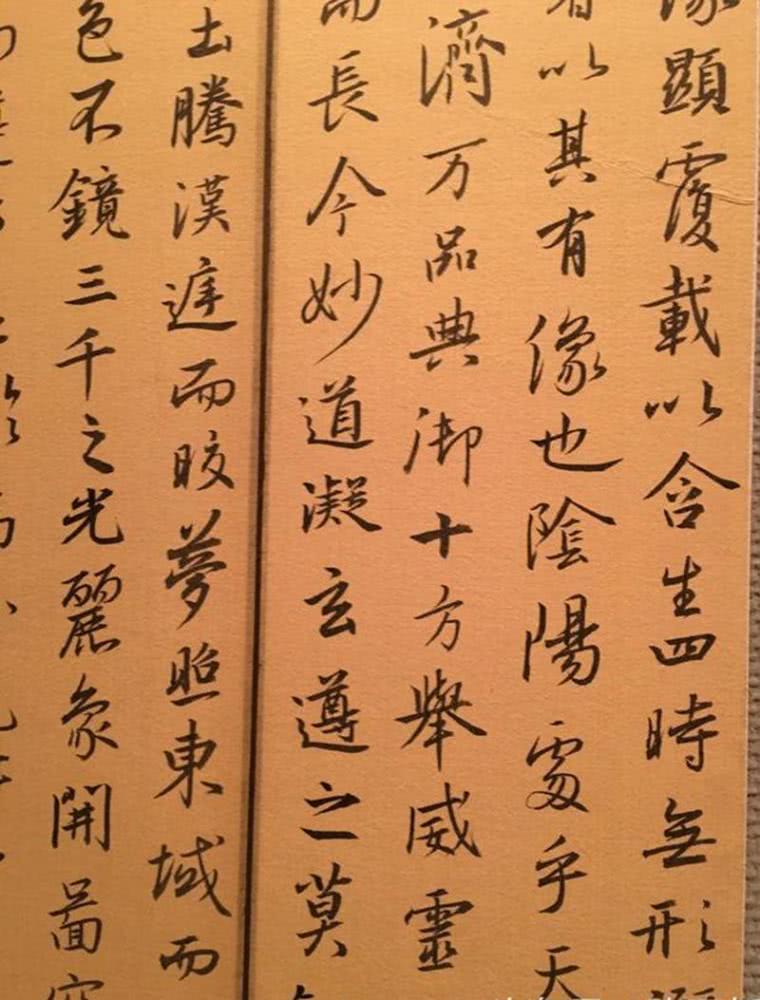 像顯覆載以含生四時無形
以其有像也陰陽處乎天
濟万品典御十方舉威靈
而長今妙道凝玄遵之莫
土騰漢遲而皎夢照東域而
色不鏡三千之光麗象開啚